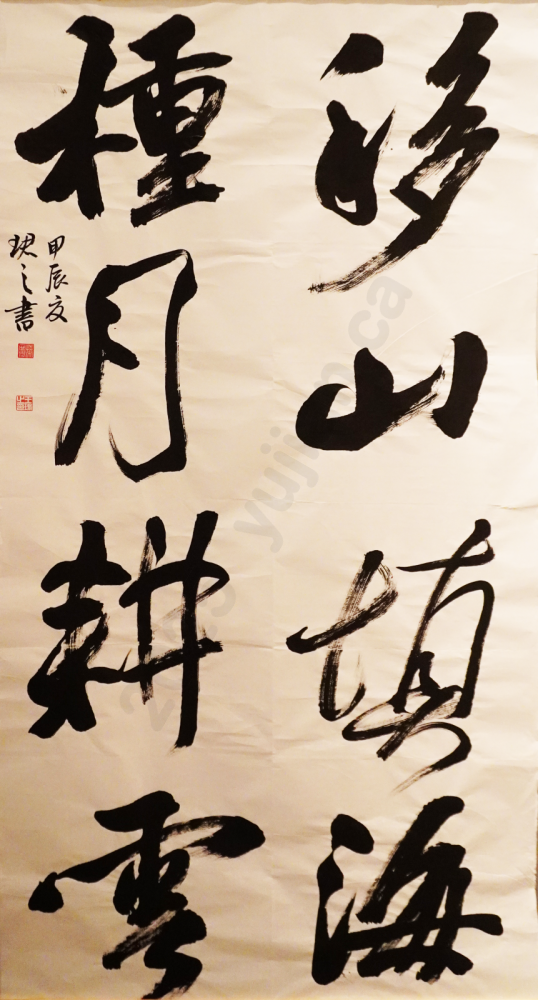 移山填海
種月耕雲
甲辰夏
珺之書